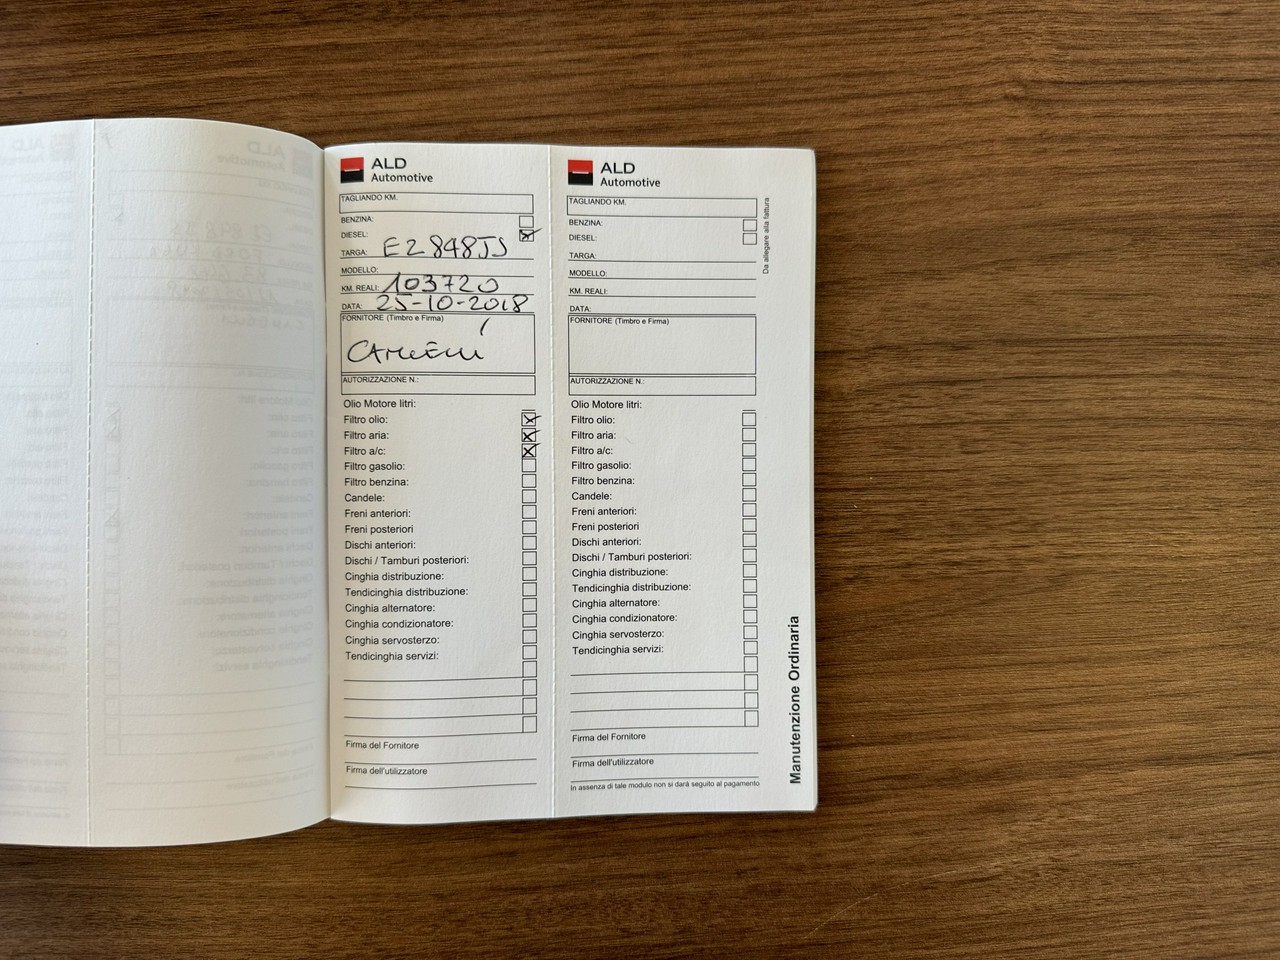 ALD
Automotive
TAGLIANDO KM.
BENZINA:
DIESEL:
TARGA: EZ848JS
MODELLO:
KM. REALI: 103720
DATA: 25-10-2018
FORNITORE (Timbro e Firma)
AUTORIZZAZIONE N.:
Olio Motore litri:
Filtro olio:
Filtro aria:
Filtro a/c:
Filtro gasolio:
Filtro benzina:
Candele:
Freni anteriori:
Freni posteriori
Dischi anteriori:
Dischi / Tamburi posteriori:
Cinghia distribuzione:
Tendicinghia distribuzione:
Cinghia alternatore:
Cinghia condizionatore:
Cinghia servosterzo:
Tendicinghia servizi:
Firma del Fornitore
Firma dell'utilizzatore
ALD
Automotive
TAGLIANDO KM.
BENZINA:
DIESEL:
TARGA:
MODELLO:
KM. REALI:
DATA:
FORNITORE (Timbro e Firma)
AUTORIZZAZIONE N.:
Olio Motore litri:
Filtro olio:
Filtro aria:
Filtro a/c:
Filtro gasolio:
Filtro benzina:
Candele:
Freni anteriori:
Freni posteriori
Dischi anteriori:
Dischi / Tamburi posteriori:
Cinghia distribuzione:
Tendicinghia distribuzione:
Cinghia alternatore:
Cinghia condizionatore:
Cinghia servosterzo:
Tendicinghia servizi:
Firma del Fornitore
Firma dell'utilizzatore
In assenza di tale modulo non si darà seguito al pagamento
Da allegare alla fattura
Manutenzione Ordinaria